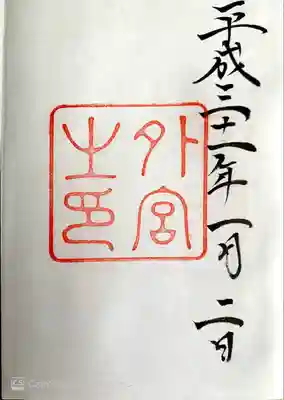 平成三十一年一月二日
外宮
之印
CS